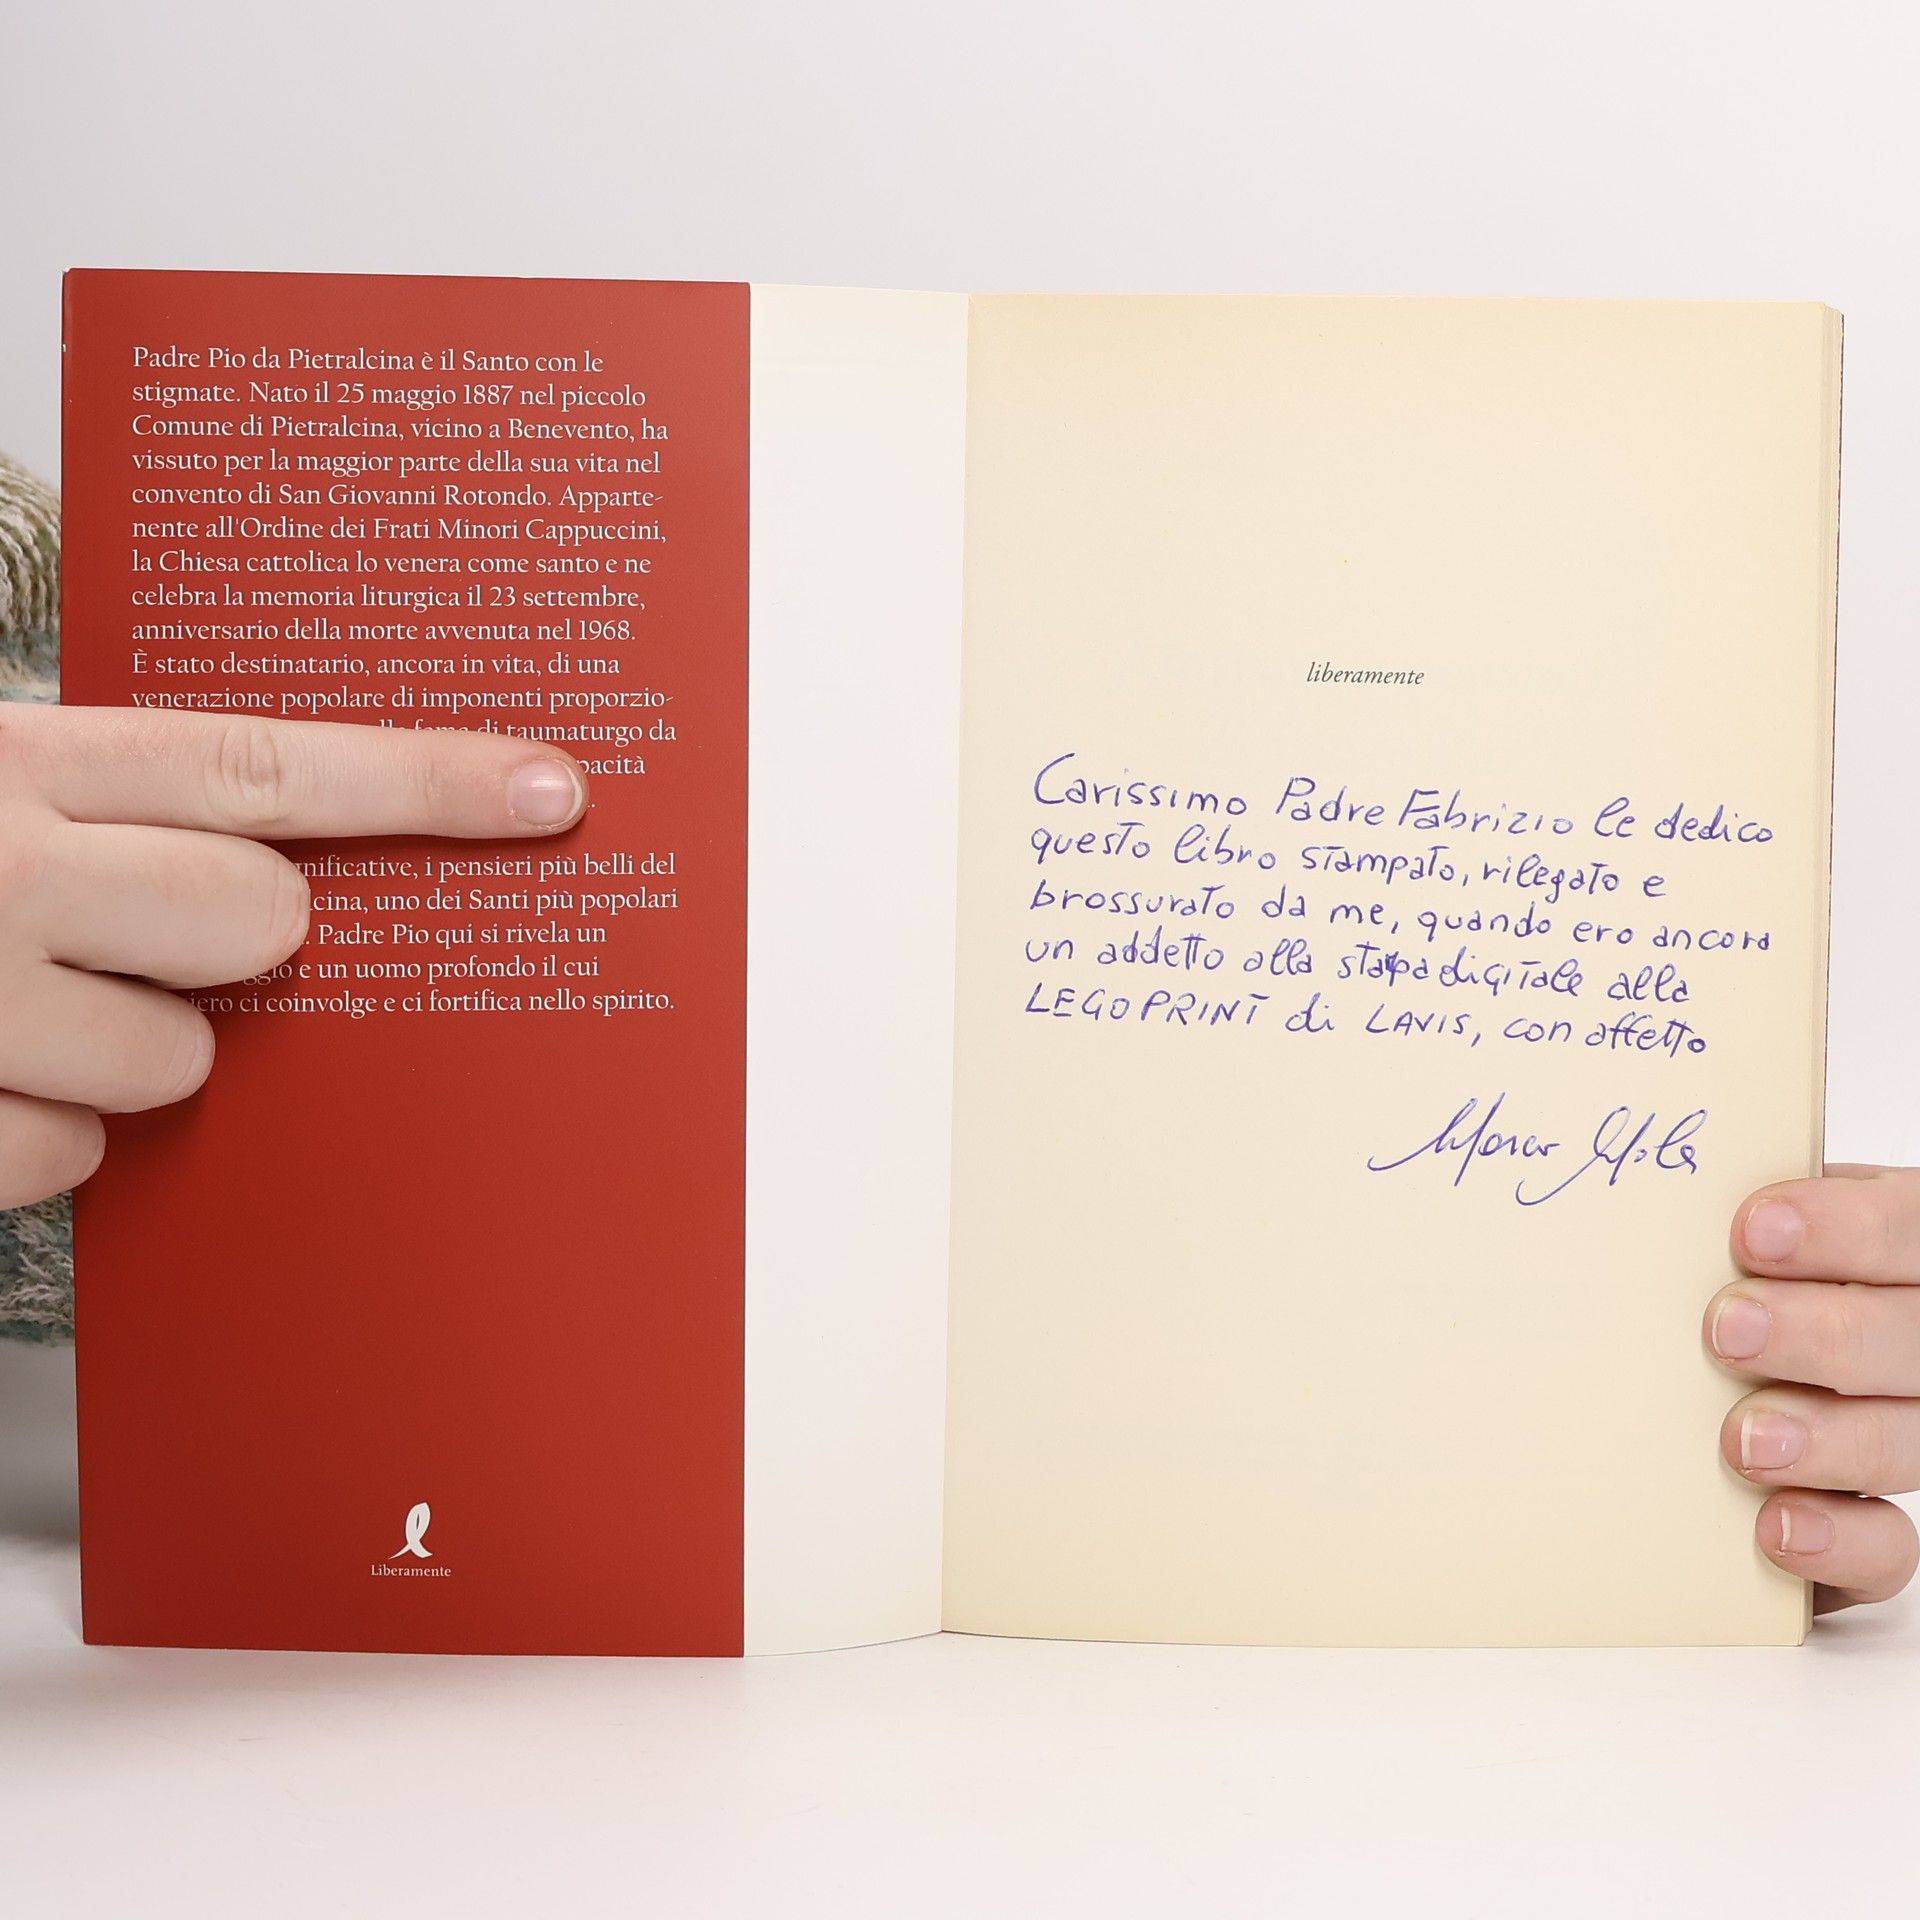 Padre Pio da Pietralcina è il Santo con le
stigmate. Nato il 25 maggio 1887 nel piccolo
Comune di Pietralcina, vicino a Benevento, ha
vissuto per la maggior parte della sua vita nel
convento di San Giovanni Rotondo. Apparte-
nente all'Ordine dei Frati Minori Cappuccini,
la Chiesa cattolica lo venera come santo e ne
celebra la memoria liturgica il 23 settembre,
anniversario della morte avvenuta nel 1968.
È stato destinatario, ancora in vita, di una
venerazione popolare di imponenti proporzio-
fama di taumaturgo da
i pensieri più belli del
uno dei Santi più popolari
Padre Pio qui si rivela un
e un uomo profondo il cui
ci coinvolge e ci fortifica nello spirito.
Liberamente
liberamente
Carissimo Padre Fabrizio le dedico
questo libro stampato, rilegato e
brossurato da me, quando ero ancora
un addetto alla stampa digitale alla
LEGOPRINT di LAVIS, con affetto